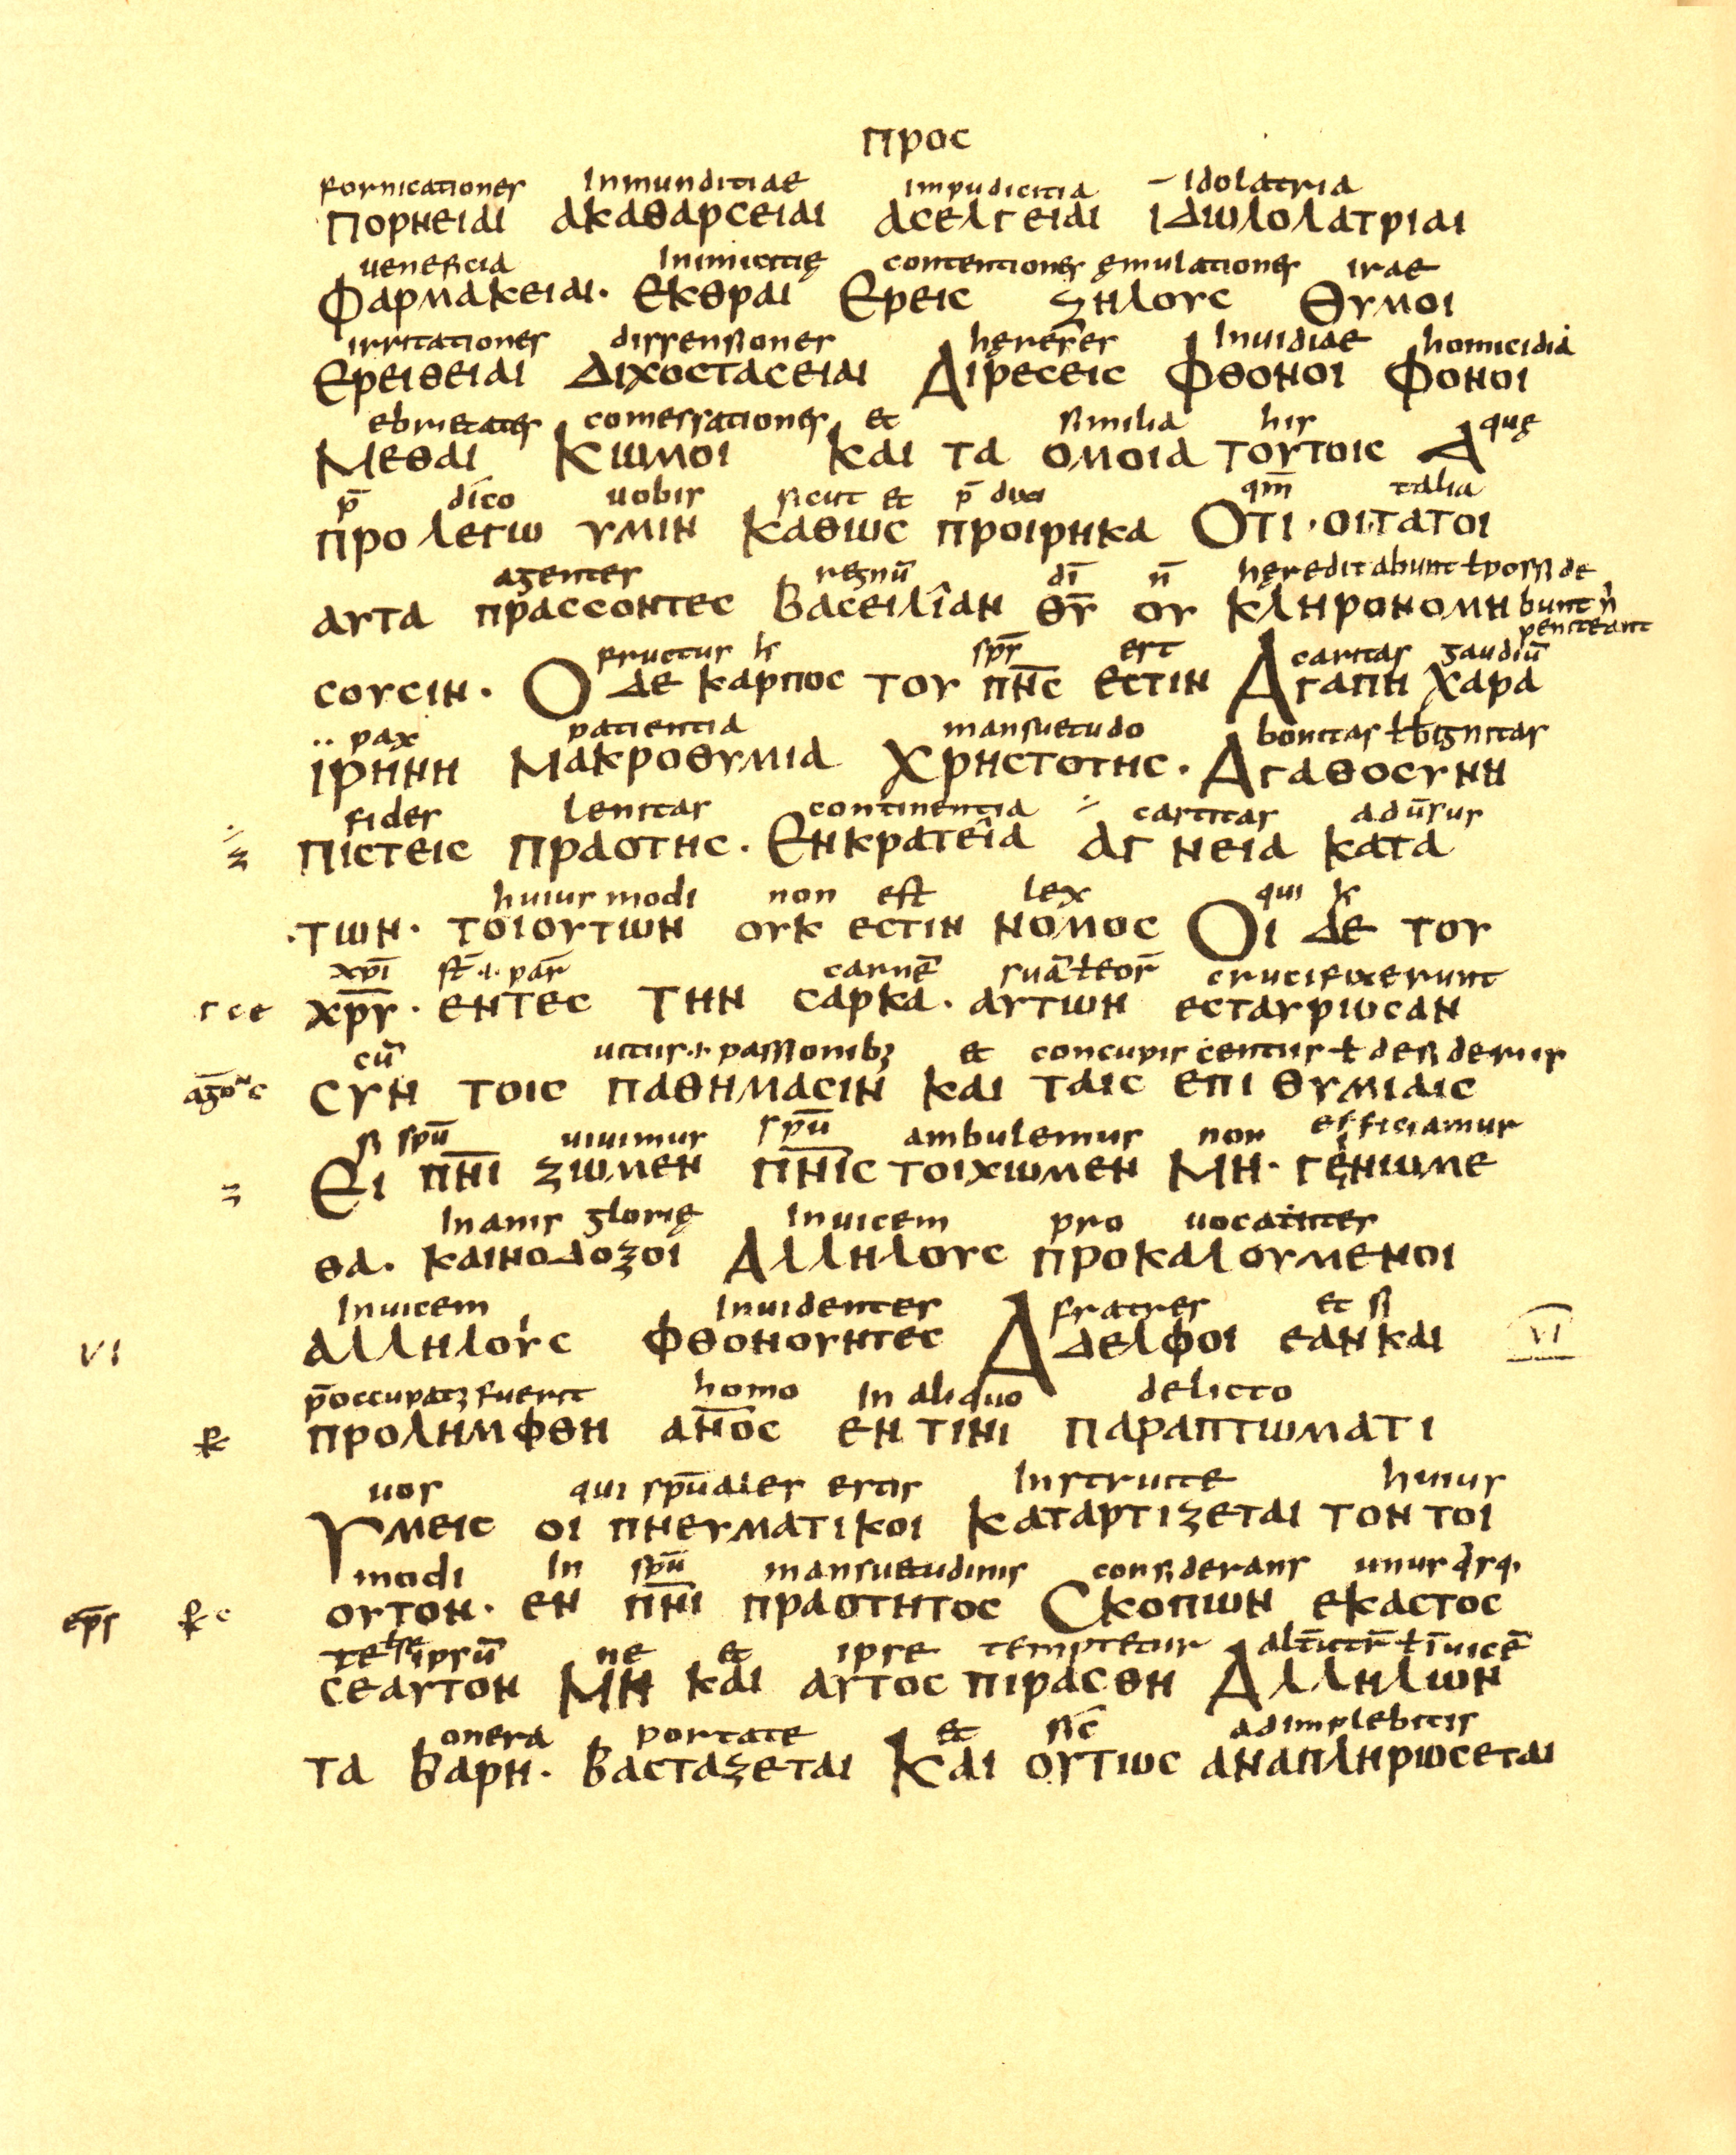 προς
fornicationes Inmunditiae impudicitia Idolatria
πορνειαι ακαθαρσειαι ασελγειαι ιδωλολατριαι
ueneficia Inimicitię contentiones ęmulationes irae
Φαρμακειαι· Εκθραι Ερεις ζηλους θυμοι
irritationes dissensiones hęreses Inuidiae homicidia
Ερειθειαι Διχοστασειαι Αιρεσεις Φθονοι Φονοι
ebrietates comessationes et similia his quę
Μεθαι Κωμοι Και τα ομοια τουτοις Α
p̄ dico uobis sicut et p̄ dixi qm̄ talia
προ λεγω υμιν καθως προιρηκα Οτι·οιτατοι
agentes regnū dī n̄ hęreditabunt ł posside
αυτα πρασσοντες βασειλιαν θῡ ου κληρονομη bunt
peniteant
fructus sp̄s est caritas gaudiū
σουσιν· Ο δε καρπος του πν̄ς εστιν Αγαπη χαρα
pax patientia mansuetudo bonitas ł bignitas
ιρηνη Μακροθυμια Χρηστοτης· Αγαθοσυνη
fides lenitas continentia castitas adūsus
πιστεις πραοτης· Ενκρατεια αγνεια κατα
huius modi non est lex qui
·των· τοιουτων ουκ εστιν νομος Οι δε του
xpī carnē suā ł eor̄ crucifixerunt
χρ̄υ· εντες την σαρκα· αυτων εσταυρωσαν
cū uitiis passionib; et concupiscentiis ł desideriis
συν τοις παθημασιν και ταις επιθυμιαις
si spū uiuimus spū ambulemus non efficiamur
Ει πν̄ι ζωμεν πν̄ις τοιχωμεν Μη· γενωμε
Inanis glorię Inuicem pro uocantes
θα· καινοδοξοι Αλληλους προκαλουμενοι
Inuicem Inuidentes fratres et si
VI αλληλους φθονουντες Αδελφοι εαν και VI
p̄occupat; fuerit homo In aliquo delicto
προλημφθη αν̄ος εν τινι παραπτωματι
uos qui spūales estis Instruite huius
Υμεις οι πνευματικοι καταρτιζεται τον τοι
modi In spū mansuetudinis considerans unus
ουτον· εν πν̄ι πραοτητος Σκοπων εκαστος
te ipsū ne et ipse temptetur ł īuicē
σεαυτον Μη και αυτος πιρασθη Αλληλων
onera portate et sic adimplebitis
τα βαρη· βασταζεται Και ουτως αναπληρωσεται